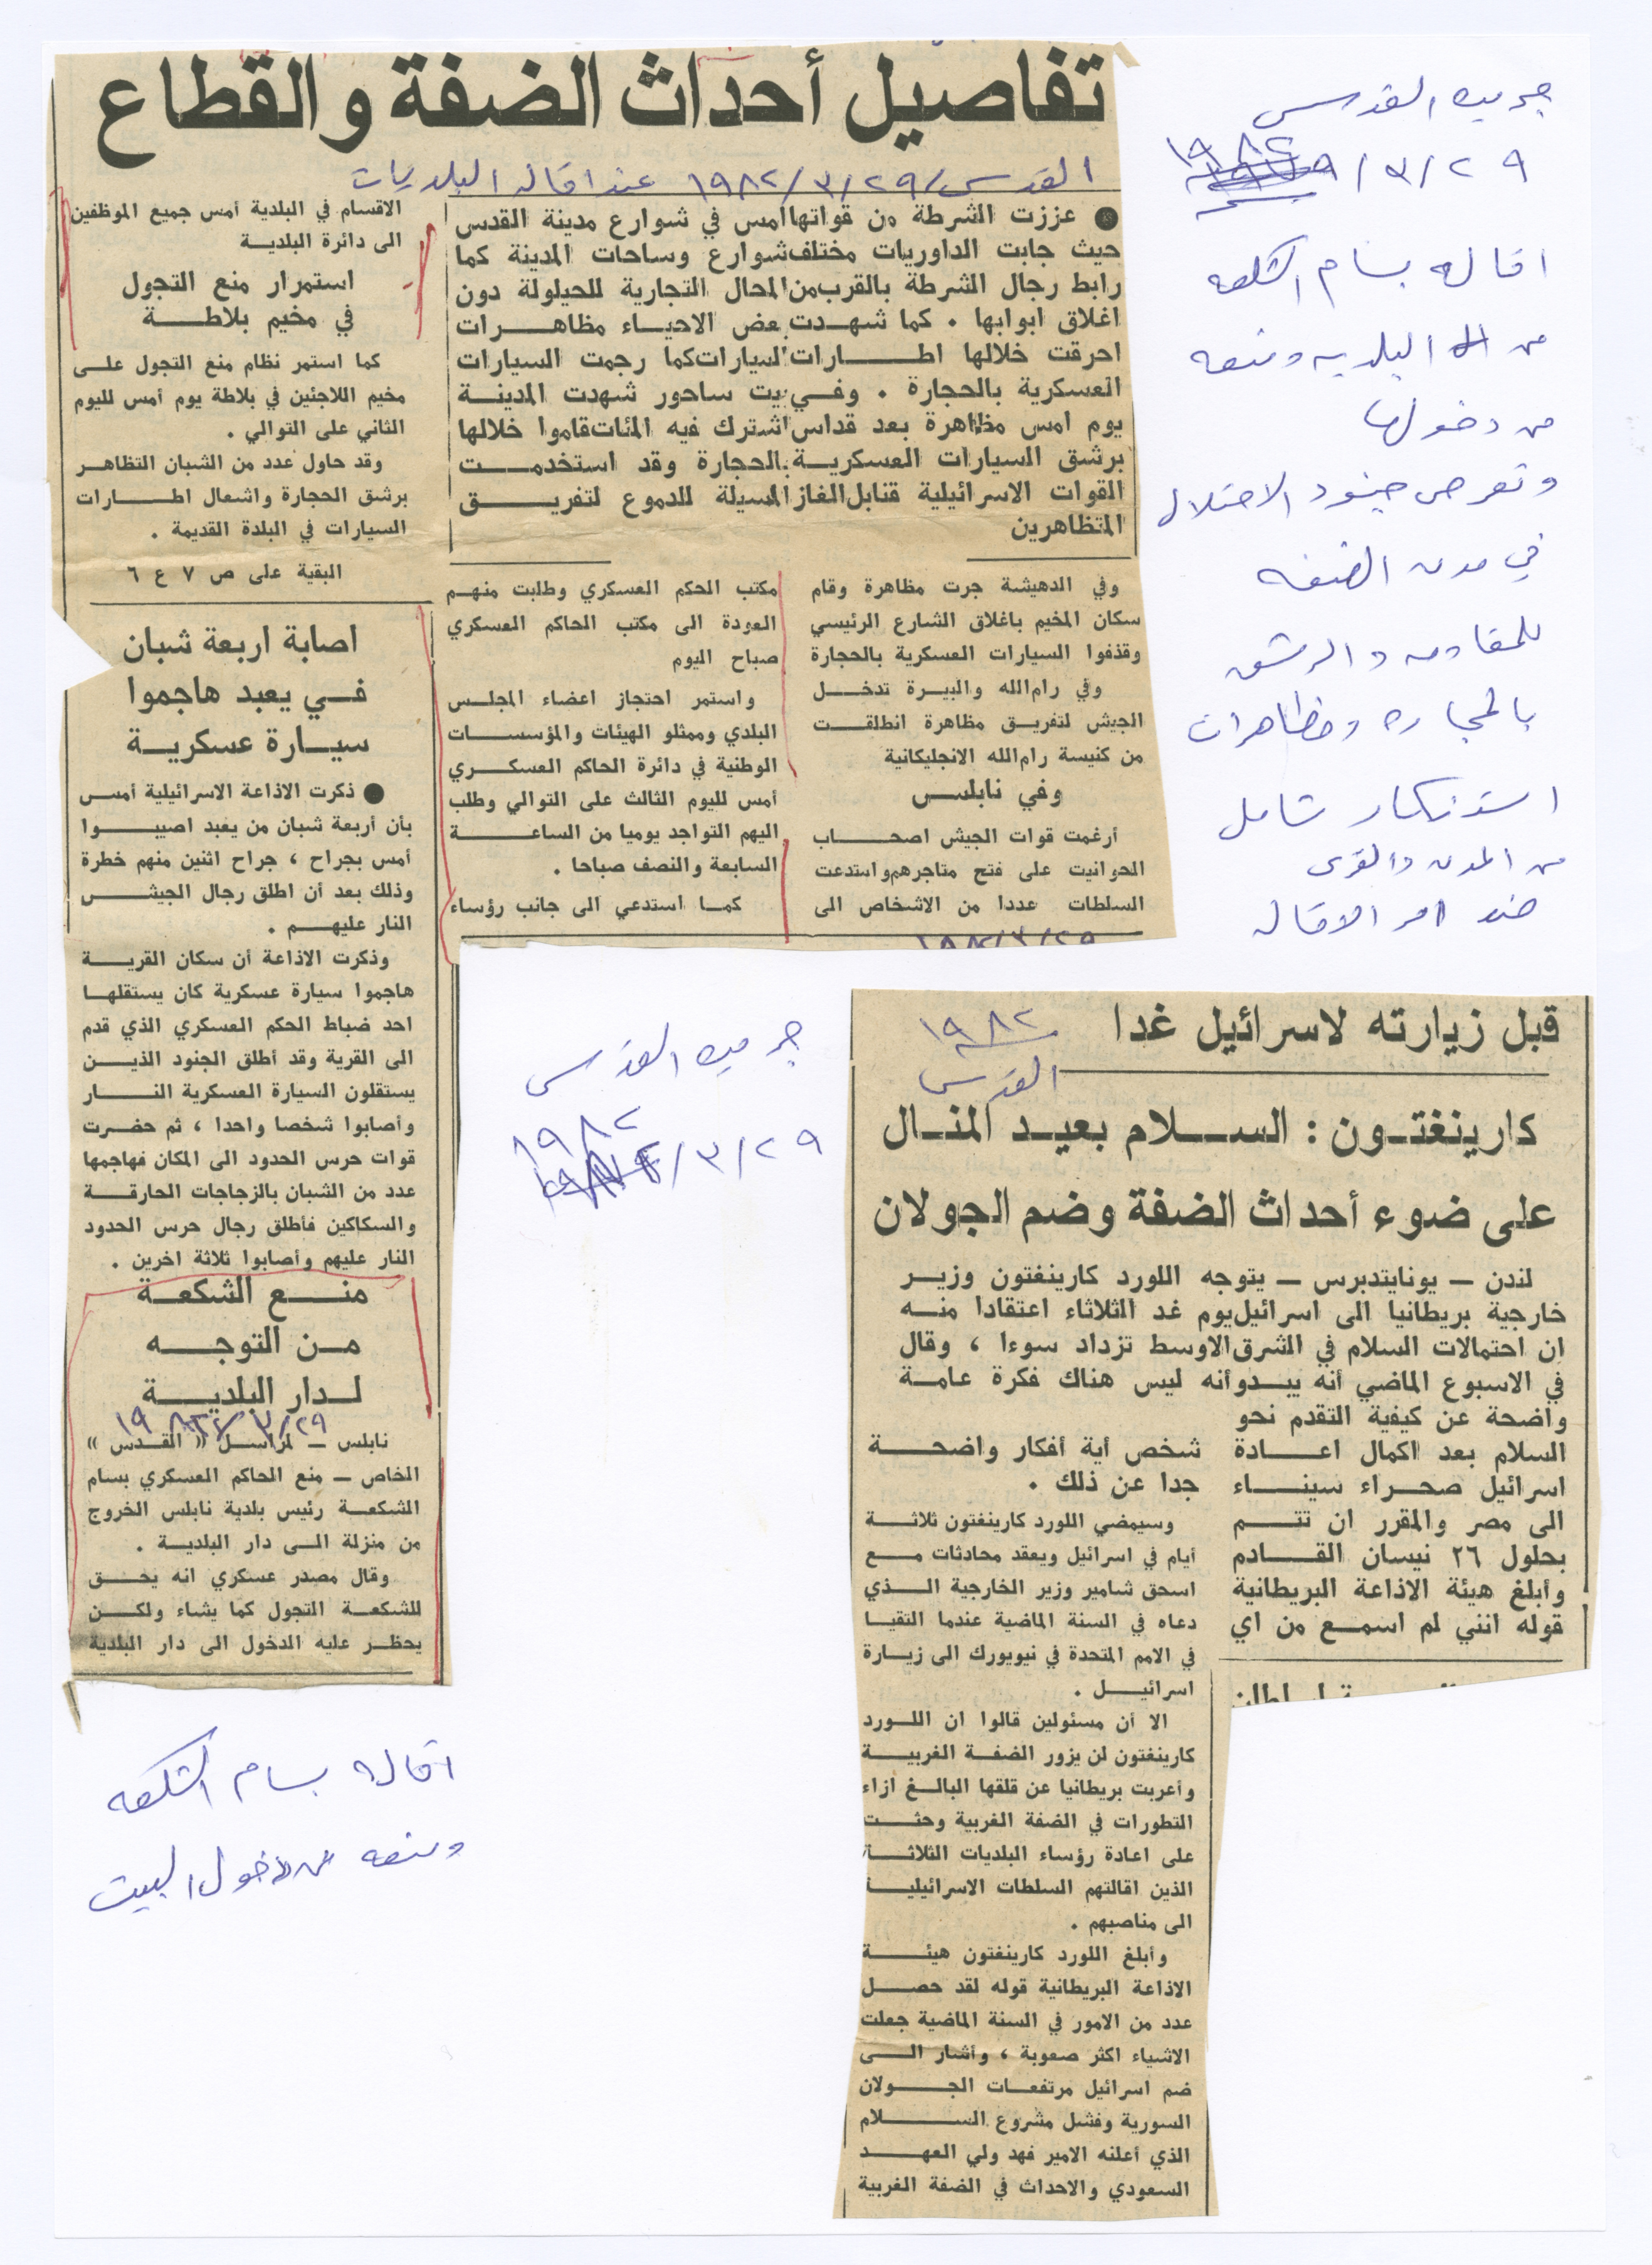 تفاصيل أحداث الضفة والقطاع
القدس ٢٩/٣/١٩٨٢ عند اقالة البلديات
● عززت الشرطة من قواتها امس في شوارع مدينة القدس
حيث جابت الداوريات مختلف شوارع وساحات المدينة كما
رابط رجال الشرطة بالقرب من المحال التجارية للحيلولة دون
اغلاق ابوابها . كما شهدت بعض الاحياء مظاهرات
احرقت خلالها اطارات السيارات كما رجمت السيارات
العسكرية بالحجارة . وفي بيت ساحور شهدت المدينة
يوم امس مظاهرة بعد قداس اشترك فيه المئات قاموا خلالها
برشق السيارات العسكرية بالحجارة وقد استخدمت
القوات الاسرائيلية قنابل الغاز المسيلة للدموع لتفريق
المتظاهرين
وفي الدهيشة جرت مظاهرة وقام
سكان المخيم باغلاق الشارع الرئيسي
وقذفوا السيارات العسكرية بالحجارة
وفي رام الله والبيرة تدخل
الجيش لتفريق مظاهرة انطلقت
من كنيسة رام الله الانجليكانية
وفي نابلس
أرغمت قوات الجيش اصحاب
الحوانيت على فتح متاجرهم واستدعت
السلطات عددا من الاشخاص الى
مكتب الحكم العسكري وطلبت منهم
العودة الى مكتب الحاكم العسكري
صباح اليوم
واستمر احتجاز اعضاء المجلس
البلدي وممثلو الهيئات والمؤسسات
الوطنية في دائرة الحاكم العسكري
أمس لليوم الثالث على التوالي وطلب
اليهم التواجد يوميا من الساعة
السابعة والنصف صباحا .
كما استدعي الى جانب رؤساء
١٩٨٢/٣/٢٩
الاقسام في البلدية أمس جميع الموظفين
الى دائرة البلدية
استمرار منع التجول
في مخيم بلاطة
كما استمر نظام منع التجول على
مخيم اللاجئين في بلاطة يوم أمس لليوم
الثاني على التوالي .
وقد حاول عدد من الشبان التظاهر
برشق الحجارة واشعال اطارات
السيارات في البلدة القديمة .
البقية على ص ٧ ع ٦
اصابة اربعة شبان
في يعبد هاجموا
سيارة عسكرية
● ذكرت الاذاعة الاسرائيلية أمس
بأن أربعة شبان من يعبد اصيبوا
أمس بجراح ، جراح اثنين منهم خطرة
وذلك بعد أن اطلق رجال الجيش
النار عليهم .
وذكرت الاذاعة أن سكان القرية
هاجموا سيارة عسكرية كان يستقلها
احد ضباط الحكم العسكري الذي قدم
الى القرية وقد أطلق الجنود الذين
يستقلون السيارة العسكرية النار
وأصابوا شخصا واحدا ، ثم حضرت
قوات حرس الحدود الى المكان فهاجمها
عدد من الشبان بالزجاجات الحارقة
والسكاكين فأطلق رجال حرس الحدود
النار عليهم وأصابوا ثلاثة اخرين .
منع الشكعة
من التوجه
لدار البلدية
٢٩/٣/١٩٨٢
نابلس – لمراسل « القدس »
الخاص – منع الحاكم العسكري بسام
الشكعة رئيس بلدية نابلس الخروج
من منزلة الى دار البلدية .
وقال مصدر عسكري انه يحق
للشكعة التجول كما يشاء ولكن
يحظر عليه الدخول الى دار البلدية
اقالة بسام الشكعه
ومنعه من دخول البيت
جريده القدس
٢٩/٣/١٩٨٢
اقاله بسام الشكعه
من البلديه ومنعه
من دخولها
وتعرض جنود الاحتلال
في مدن الضفه
للمقاومه والرشق
بالحجاره ومظاهرات
استنكار شامل
من المدن والقرى
ضد امر الاقاله
جريده القدس
٢٩/٣/١٩٨٢
قبل زيارته لاسرائيل غدا
١٩٨٢
القدس
كارينغتون : السلام بعيد المنال
على ضوء أحداث الضفة وضم الجولان
لندن – يونايتدبرس – يتوجه اللورد كارينغتون وزير
خارجية بريطانيا الى اسرائيل يوم غد الثلاثاء اعتقادا منه
ان احتمالات السلام في الشرق الاوسط تزداد سوءا ، وقال
في الاسبوع الماضي أنه يبدو أنه ليس هناك فكرة عامة
واضحة عن كيفية التقدم نحو
السلام بعد اكمال اعادة
اسرائيل صحراء سيناء
الى مصر والمقرر ان تتم
بحلول ٢٦ نيسان القادم
وأبلغ هيئة الاذاعة البريطانية
قوله انني لم اسمع من اي
شخص أية أفكار واضحة
جدا عن ذلك .
وسيمضي اللورد كارينغتون ثلاثة
أيام في اسرائيل ويعقد محادثات مع
اسحق شامير وزير الخارجية الذي
دعاه في السنة الماضية عندما التقيا
في الامم المتحدة في نيويورك الى زيارة
اسرائيل .
الا أن مسئولين قالوا ان اللورد
كارينغتون لن يزور الضفة الغربية
وأعربت بريطانيا عن قلقها البالغ ازاء
التطورات في الضفة الغربية وحثت
على اعادة رؤساء البلديات الثلاثة
الذين اقالتهم السلطات الاسرائيلية
الى مناصبهم .
وأبلغ اللورد كارينغتون هيئة
الاذاعة البريطانية قوله لقد حصل
عدد من الامور في السنة الماضية جعلت
الاشياء اكثر صعوبة ، وأشار الى
ضم اسرائيل مرتفعات الجولان
السورية وفشل مشروع السلام
الذي أعلنه الامير فهد ولي العهد
السعودي والاحداث في الضفة الغربية